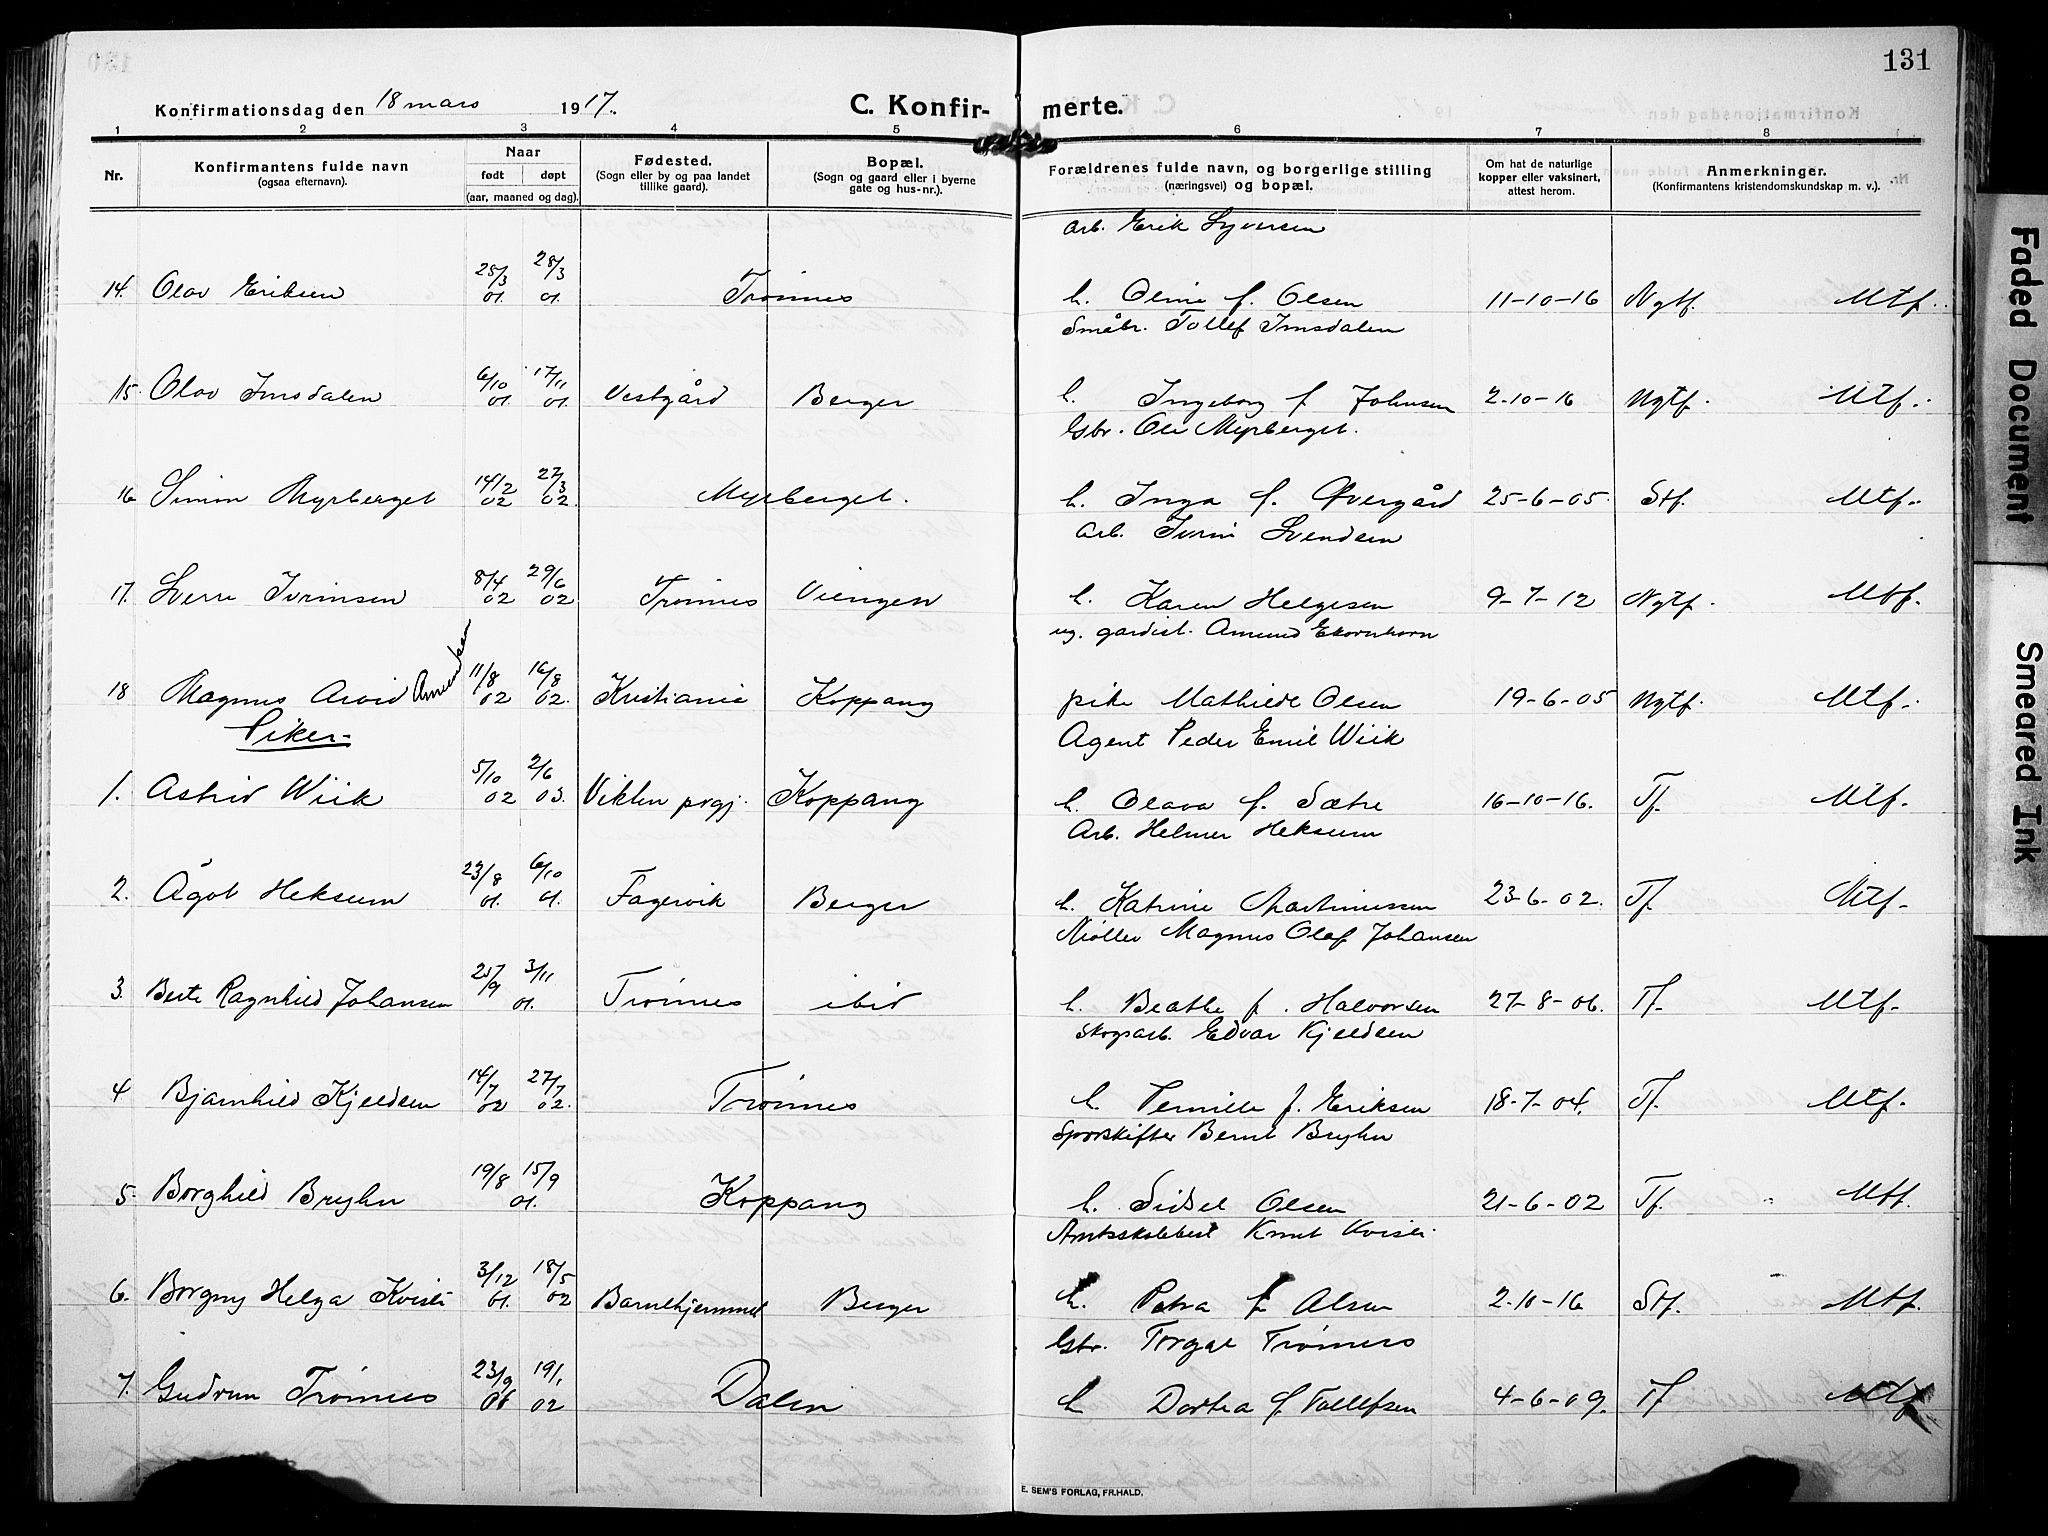 131
Konfirmationsdag den 18 mars 1917.
C. Konfir-merte.
1 2 3 4 5 6 7 8
Nr.
Konfirmantens fulde navn
(ogsaa efternavn).
Naar
født døpt
(aar, maaned og dag).
Fødested.
(Sogn eller by og paa landet
tillike gaard).
Bopæl.
(Sogn og gaard eller i byerne
gate og hus-nr.).
Forældrenes fulde navn, og borgerlige stilling
(næringsvei) og bopæl.
Om hat de naturlige
kopper eller vaksinert,
attest herom.
Anmerkninger.
(Konfirmantens kristendomskundskap m. v.).
Arb. Erik Syversen
14. Olav Eriksen 25/3 01. 28/3 01. Trønnes h. Oline f. Olsen 11-10-16 Ngtf. Mtf.
Småbr. Tollef Imsdalen
15. Olav Imsdalen 6/10 01. 17/11 01. Vestgård Berger h. Ingeborg f. Johnsen 2-10-16 Ngtf. Mtf.
Gbr. Ole Myrberget.
16 Simon Myrberget 14/2 02 27/3 02. Myrberget. h. Inga f. Øvergård 25-6-05. Stf. Mtf.
Arb. Iverin Svendsen
17. Sverre Iverinsen 8/4 02 29/6 02 Trønnes Viengen h. Karen Helgesen 9-7-12 Ngtf. Mtf.
ug. gardist. Amund Ekornhorn
18 Magnus Arvid Amundsen 11/8 02 16/8 02. Kristiania Koppang pike Mathilde Olsen 19-6-05 Ngtf. Mtf.
Piker.
Agent Peder Emil Wiik
1. Astrid Wiik 5/10 02 2/6 03. Vikten prgj. Koppang h. Olava f. Sætre 16-10-16. Tf. Mtf.
Arb. Helmer Heksum
2. Ågot Heksum 23/8 01. 6/10 01. Fagervik Berger h. Katrine Martinussen 23-6-02. Tf. Mtf.
Møller Magnus Olaf Johansen
3. Berte Ragnhild Johansen 25/9 3/11 01. Trønnes ibid h. Beathe f. Halvorsen 27-8-06. Tf. Mtf.
Skogsarb. Edvar Kjeldsen
4 Bjarnhild Kjeldsen 14/7 02 27/7 02. Trønnes h. Pernille f. Eriksen 18-7-04. Tf. Mtf.
Sporskifter Bernt Bryhn
5. Borghild Bryhn 19/8 15/9 01. Koppang h. Sidsel Olsen 21-6-02 Tf. Mtf.
Knut Kvisli
6. Borgny Helga Kvisli 3/12 01. 18/5 02 Barnehjemmet Berger h. Petra f. Alsen 2-10-16 Stf. Mtf.
Gbr. Torgal Trønnes
7. Gudrun Trønnes 23/9 01 19/1 02 Dalen h Dortea f. Tollefsen 4-6-09. Tf Mtf
E. SEM'S FORLAG, FR.HALD.
Faded Document
Smeared Ink